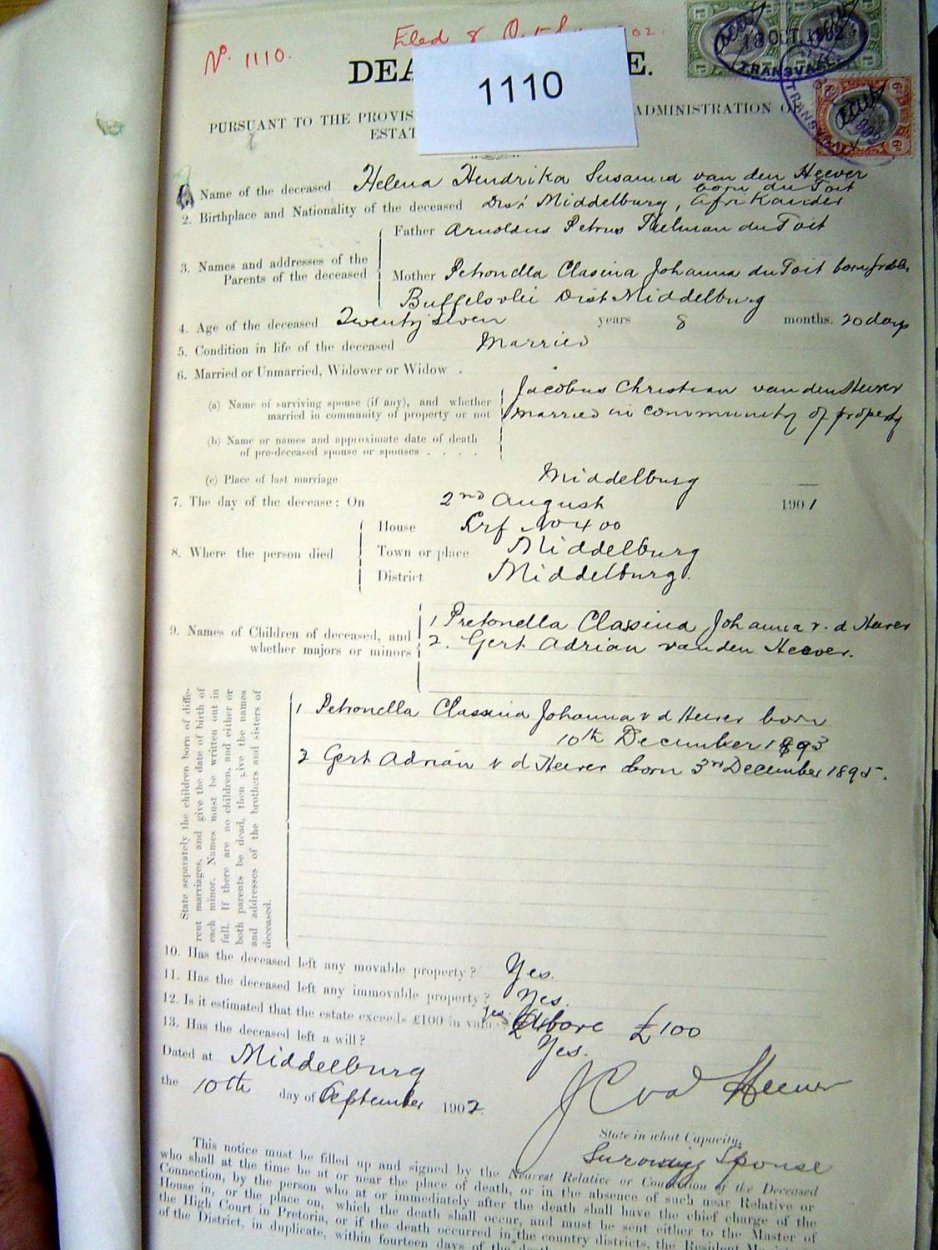 No. 1110. Filed 8 02.
18 OCT 1902
TRANSVAAL
TRANSVAAL
DEA E.
1110
PURSUANT TO THE PROVIS ADMINISTRATION OF
ESTAT
1. Name of the deceased Helena Hendrika Susanna van den Heever
born du Toit
2. Birthplace and Nationality of the deceased Dist Middelburg, Afrikander
3. Names and addresses of the Parents of the deceased
Father Arnoldus Petrus Tielman du Toit
Mother Petronella Clasina Johanna du Toit born
Buffelsvlei Dist Middelburg
4. Age of the deceased Twenty seven years 8 months. 20 days
5. Condition in life of the deceased Married
6. Married or Unmarried, Widower or Widow .
(a) Name of surviving spouse (if any), and whether married in community of property or not
Jacobus Christian van den Heever
married in community of property
(b) Name or names and approximate date of death
of pre-deceased spouse or spouses . . . .
(c) Place of last marriage Middelburg —
7. The day of the decease: On 2nd August 1901
8. Where the person died
House Erf No 400
Town or place Middelburg
District Middelburg.
9. Names of Children of deceased, and whether majors or minors
1 Pretonella Classina Johanna v. d Heever
2. Gert Adrian van den Heever.
State separately the children born of diffe-
rent marriages, and give the date of birth of
each minor. Names must be written out in
full. If there are no children, and either or
both parents be dead, then give the names
and addresses of the brothers and sisters of
deceased.
1 Petronella Classina Johanna v d Heever born
10th December 1893
2 Gert Adrian v d Heever born 3rd December 1895.
10. Has the deceased left any movable property? Yes.
11. Has the deceased left any immovable property? Yes.
12. Is it estimated that the estate exceeds £100 in value yes above £100
13. Has the deceased left a will? Yes.
Dated at Middelburg
the 10th day of September 1902.
J C v d Heever
State in what Capacity.
Surviving Spouse
This notice must be filled up and signed by the Nearest Relative or Connection of the Deceased
who shall at the time be at or near the place of death, or in the absence of such near Relative or
Connection, by the person who at or immediately after the death shall have the chief charge of the
House in, or the place on, which the death shall occur, and must be sent either to the Master of
the High Court in Pretoria, or if the death occurred in the country districts, the Resident
of the District, in duplicate, within fourteen days of the